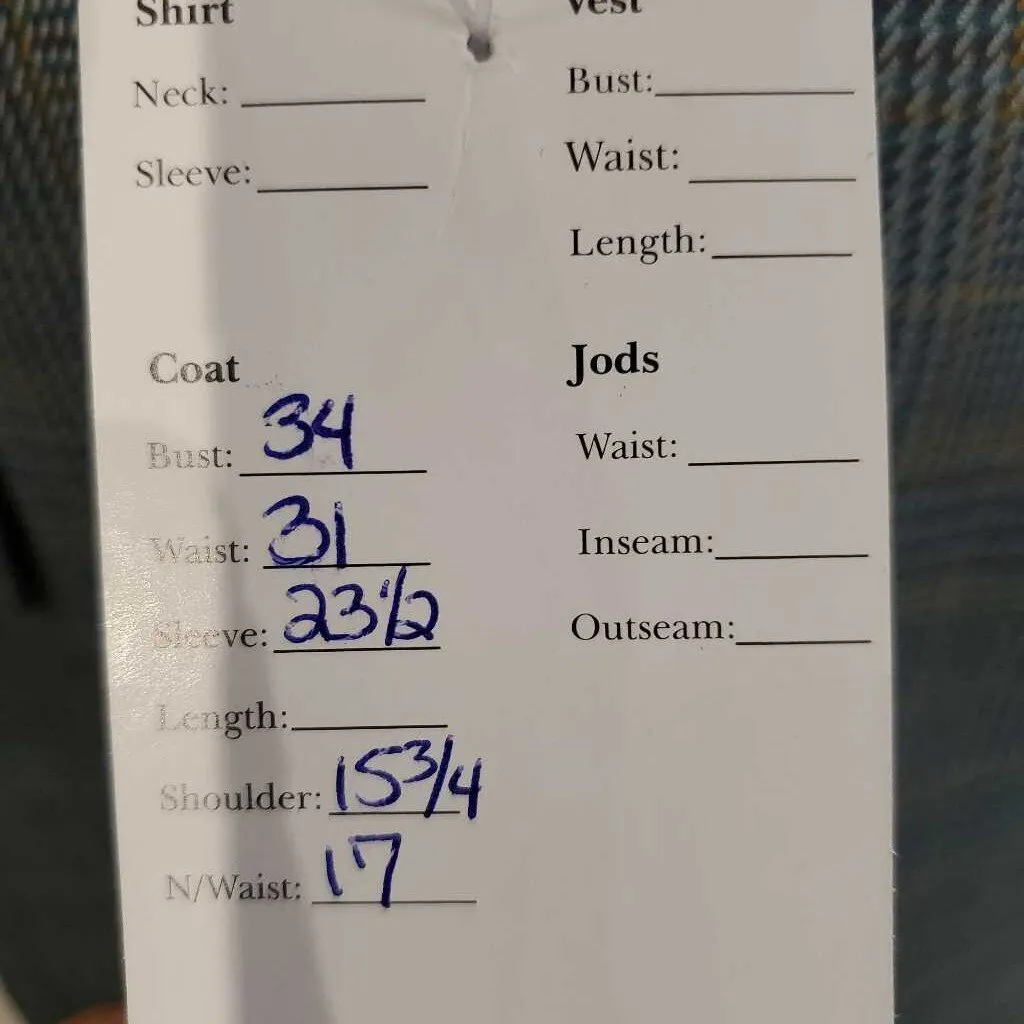 Shirt
Neck:
Sleeve:
Vest
Bust:
Waist:
Length:
Coat
Bust: 34
Waist: 31
Sleeve: 23 1/2
Length:
Shoulder: 15 3/4
N/Waist: 17
Jods
Waist:
Inseam:
Outseam: